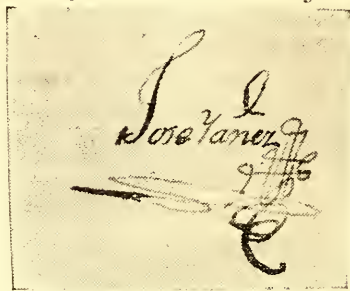 Jose Yanez